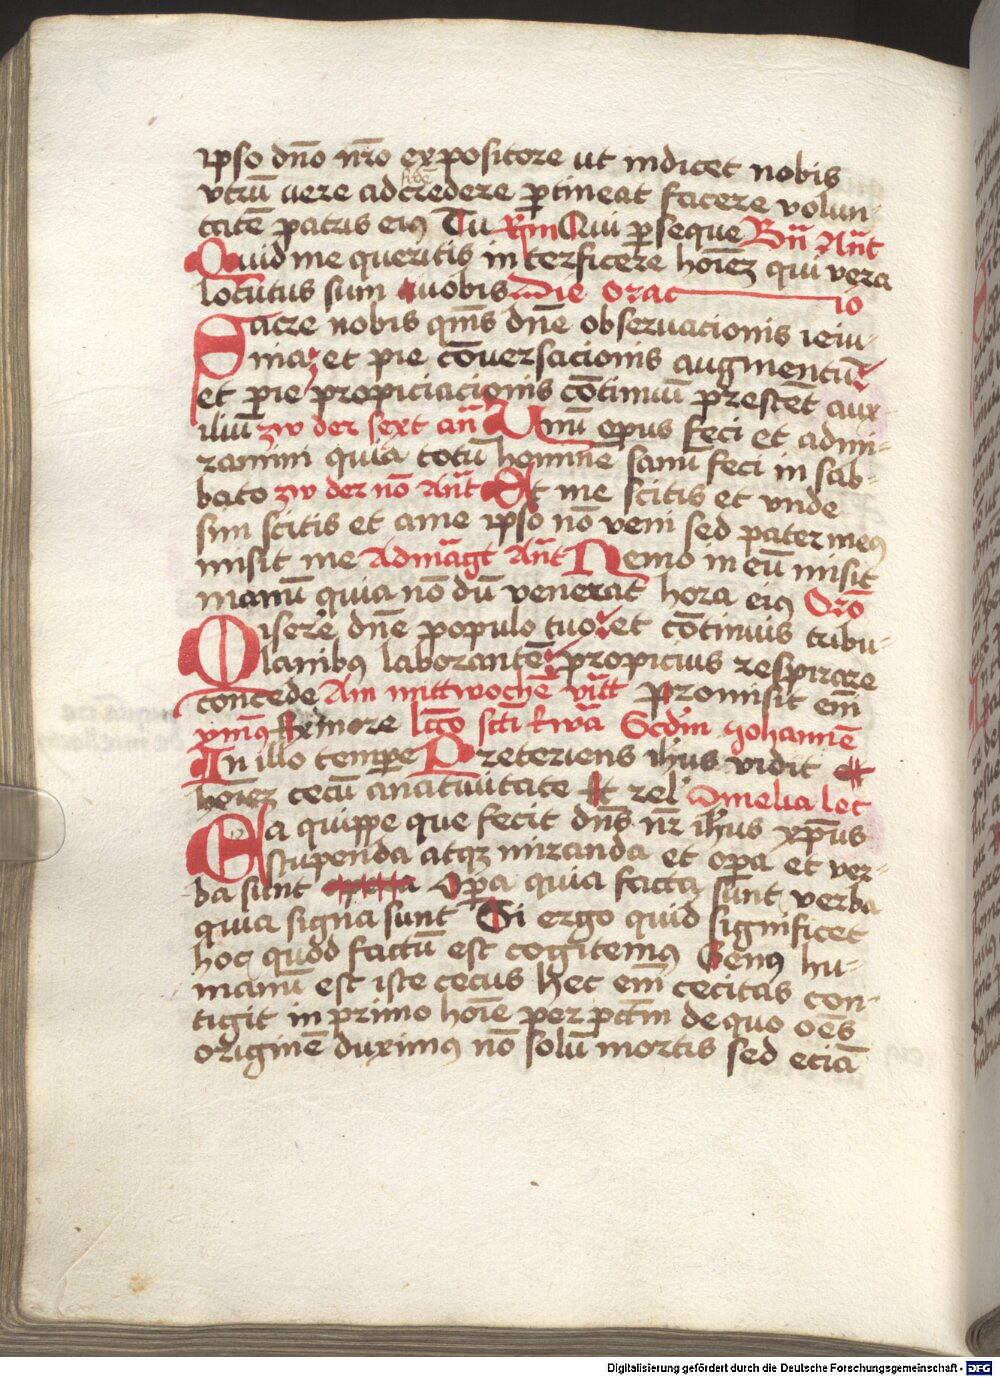 ipso dño nr̄o expositore ut indicet nobis
vtrū vere ad credere ꝑtineat facere volun-
tatē patris eiꝯ Tu Rm Qui ꝑseque Bñ Añt
Quid me queritis interficere hoīeʒ qui vera
locutus sum vobis Die Orac io
Sacre nobis qm̄s dn̄e obseruacionis ieiu-
nia et pie cōuersacionis augmentū
et ꝑ pie propiciacionis cōtinuū p̄restēt aux-
iliū zw der sext añ Unū opus feci et admi-
ramini quia totū hominē sanū feci in sab-
bato zw der nō Añt Et me scitis et vnde
sim scitis et a me ipso nō veni sed pater meꝯ
misit me Ad māgt Añt Nemo in eū misit
manū quia nō dū venerat hora eiꝯ Orō
Miserēr dn̄e populo tuo et cōtinuis tribu-
lanibꝯ laborantē propicius respirare
concede Am mittwochē vītt promisit em̄
ymꝯ Ex more lcc̄o sc̄ti ewā Scdm̄ Johannē
In illo tempore Preteriens ih̄us vidit
hoīeʒ cecū a natiuitate Et rel' Omelia lec
Ea quippe que fecit dn̄s nr̄ ih̄us xp̄us
stupenda atqʒ miranda et opa et ver-
ba sunt Opa quia facta sunt verba
quia signa sunt Si ergo quid significet
hoc quod factū est cogitemꝯ Genꝯ hu-
manū est iste cecus Hec em̄ cecitas con-
tigit in primo hoīe per pctm̄ de quo oēs
originē duximꝯ nō solū mortis sed eciā
Digitalisierung gefördert durch die Deutsche Forschungsgemeinschaft - DFG